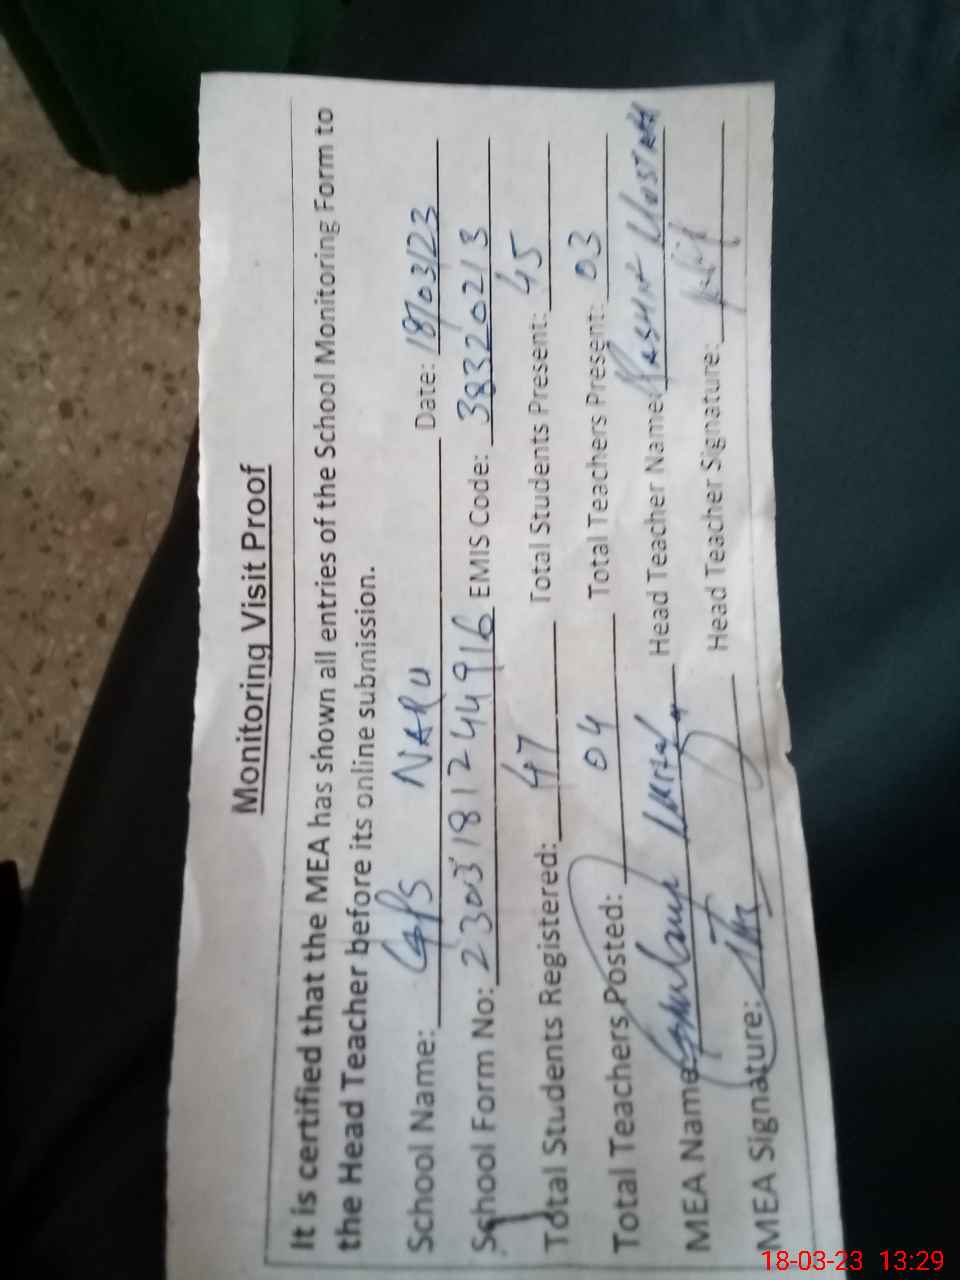 Monitoring Visit Proof
It is certified that the MEA has shown all entries of the School Monitoring Form to
the Head Teacher before its online submission.
School Name: GPS NARU Date: 18/03/23
School Form No: 2303181244916 EMIS Code: 38320213
Total Students Registered: 47 Total Students Present: 45
Total Teachers Posted: 04 Total Teachers Present: 03
MEA Name: Head Teacher Name:
MEA Signature: Head Teacher Signature:
18-03-23 13:29